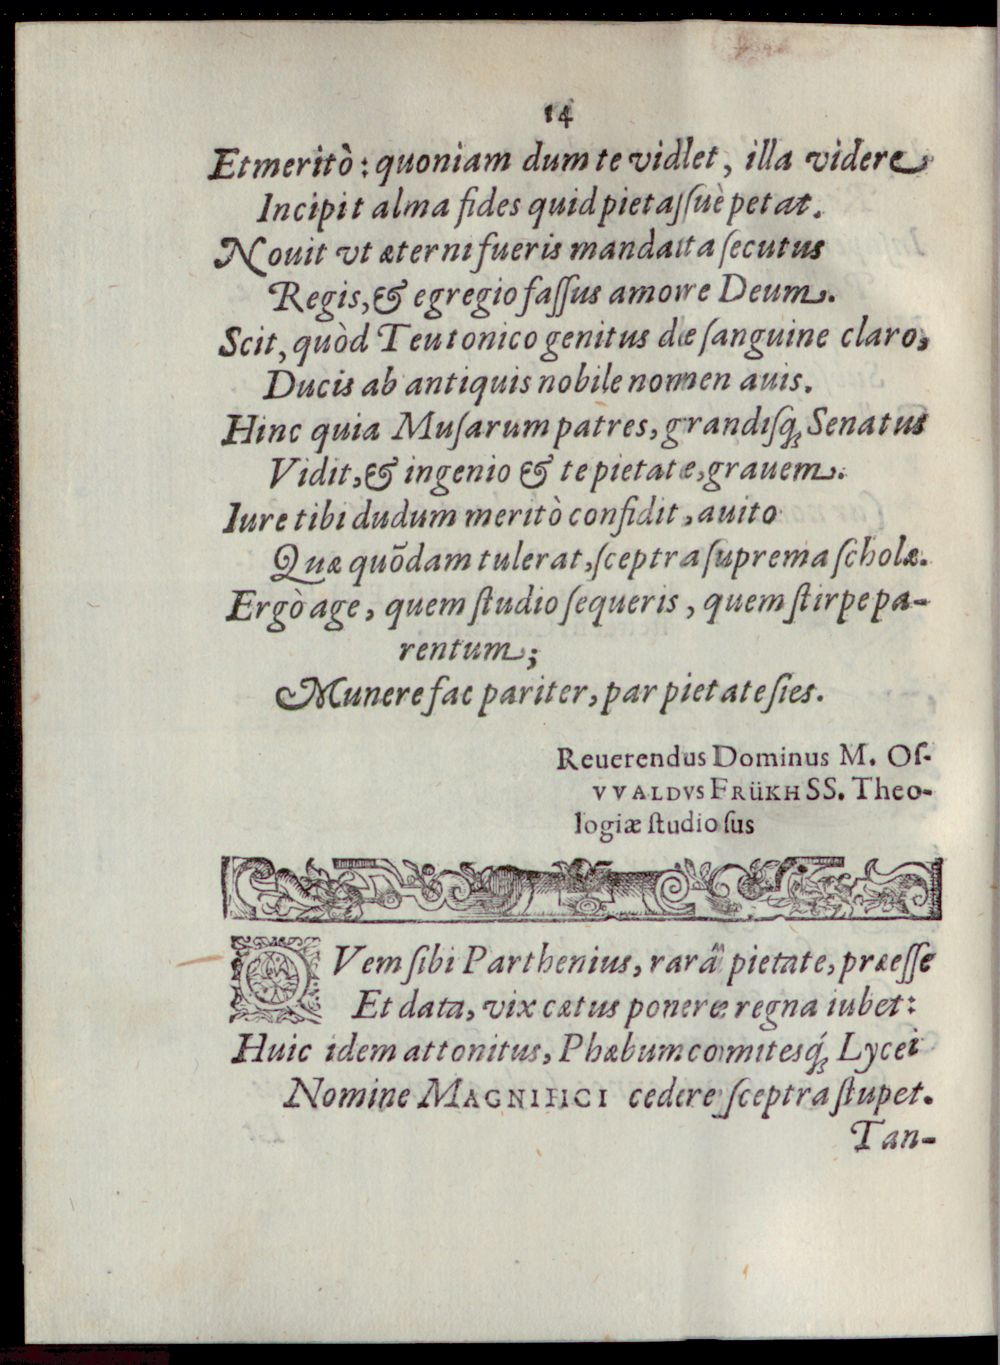 14
Et meritò: quoniam dum te videt, illa videre
Incipit alma fides quid pietasſuè petat.
Nouit vt æterni fueris mandata ſecutus
Regis, & egregio faſſus amore Deum.
Scit, quòd Teutonico genitus de ſanguine claro,
Ducis ab antiquis nobile nomen auis.
Hinc quia Muſarum patres, grandiſq; Senatus
Vidit, & ingenio & te pietate, grauem.
Iure tibi dudum meritò confidit, auito
Quæ quõdam tulerat, ſceptra ſuprema ſcholæ.
Ergò age, quem ſtudio ſequeris, quem ſtirpe pa-
rentum;
Munere fac pariter, par pietate ſies.
Reuerendus Dominus M. Oſ-
VVALDVS FRÜKH SS. Theo-
logiæ ſtudioſus
QVem ſibi Parthenius, rarâ pietate, præeſſe
Et data, vix cætus ponere regna iubet:
Huic idem attonitus, Phæbum comitesq́; Lycei
Nomine MAGNIFICI cedere ſceptra ſtupet.
Tan-